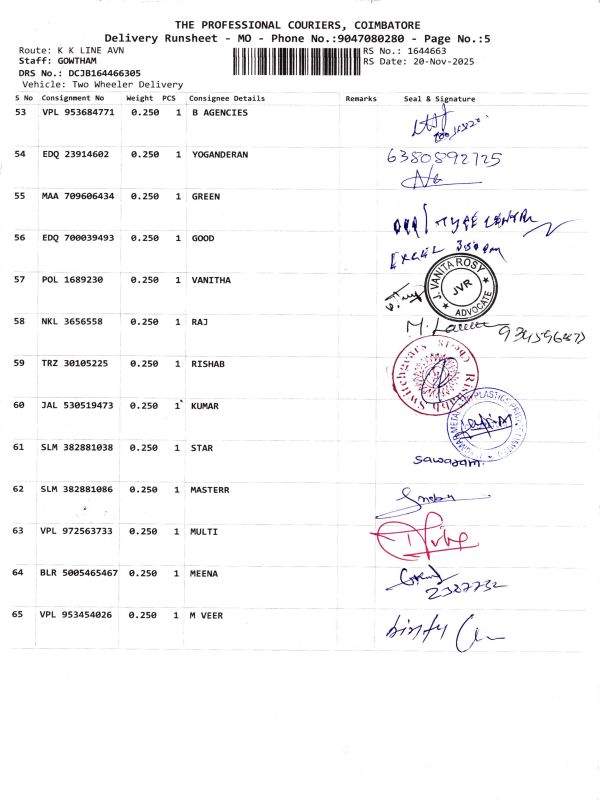 THE PROFESSIONAL COURIERS, COIMBATORE
Delivery Runsheet - MO - Phone No.:9047080280 - Page No.:5
Route: K K LINE AVN RS No.: 1644663
Staff: GOWTHAM RS Date: 20-Nov-2025
DRS No.: DCJB164466305
Vehicle: Two Wheeler Delivery
S No Consignment No Weight PCS Consignee Details Remarks Seal & Signature
53 VPL 953684771 0.250 1 B AGENCIES
54 EDQ 23914602 0.250 1 YOGANDERAN 6380892725
55 MAA 709606434 0.250 1 GREEN
56 EDQ 700039493 0.250 1 GOOD
57 POL 1689230 0.250 1 VANITHA J. VANITA ROSY JVR ADVOCATE
58 NKL 3656558 0.250 1 RAJ
59 TRZ 30105225 0.250 1 RISHAB
60 JAL 530519473 0.250 1 KUMAR
61 SLM 382881038 0.250 1 STAR
62 SLM 382881086 0.250 1 MASTERR
63 VPL 972563733 0.250 1 MULTI
64 BLR 5005465467 0.250 1 MEENA
65 VPL 953454026 0.250 1 M VEER